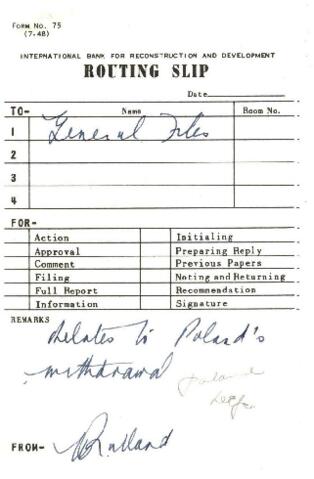 FORM NO. 75
(7-48)
INTERNATIONAL BANK FOR RECONSTRUCTION AND DEVELOPMENT
ROUTING SLIP
Date
TO- Name Room No.
1 General Files
2
3
4
FOR-
Action Initialing
Approval Preparing Reply
Comment Previous Papers
Filing Noting and Returning
Full Report Recommendation
Information Signature
REMARKS
Relates to Poland's
withdrawal
Poland
FROM-